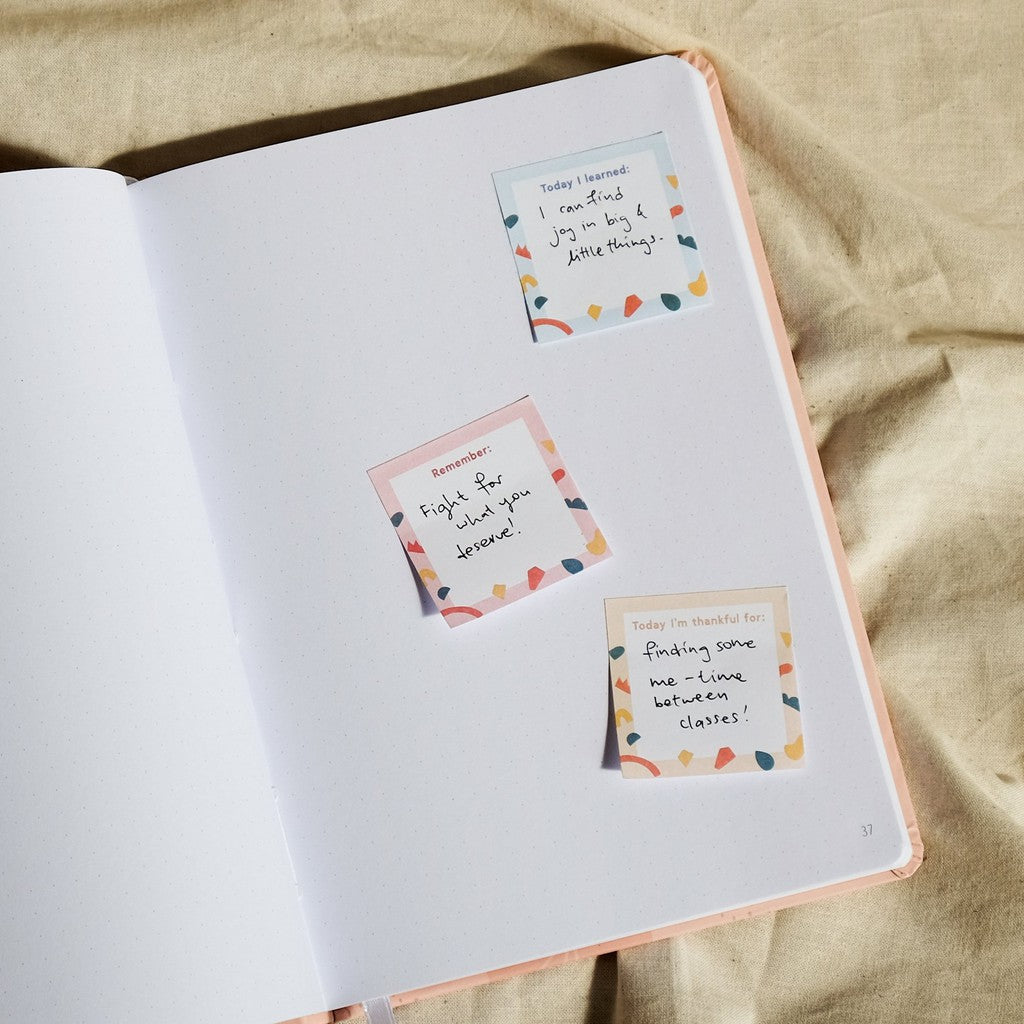 Today I learned:
I can find
joy in big &
little things.
Remember:
Fight for
what you
deserve!
Today I'm thankful for:
finding some
me-time
between
classes!
37